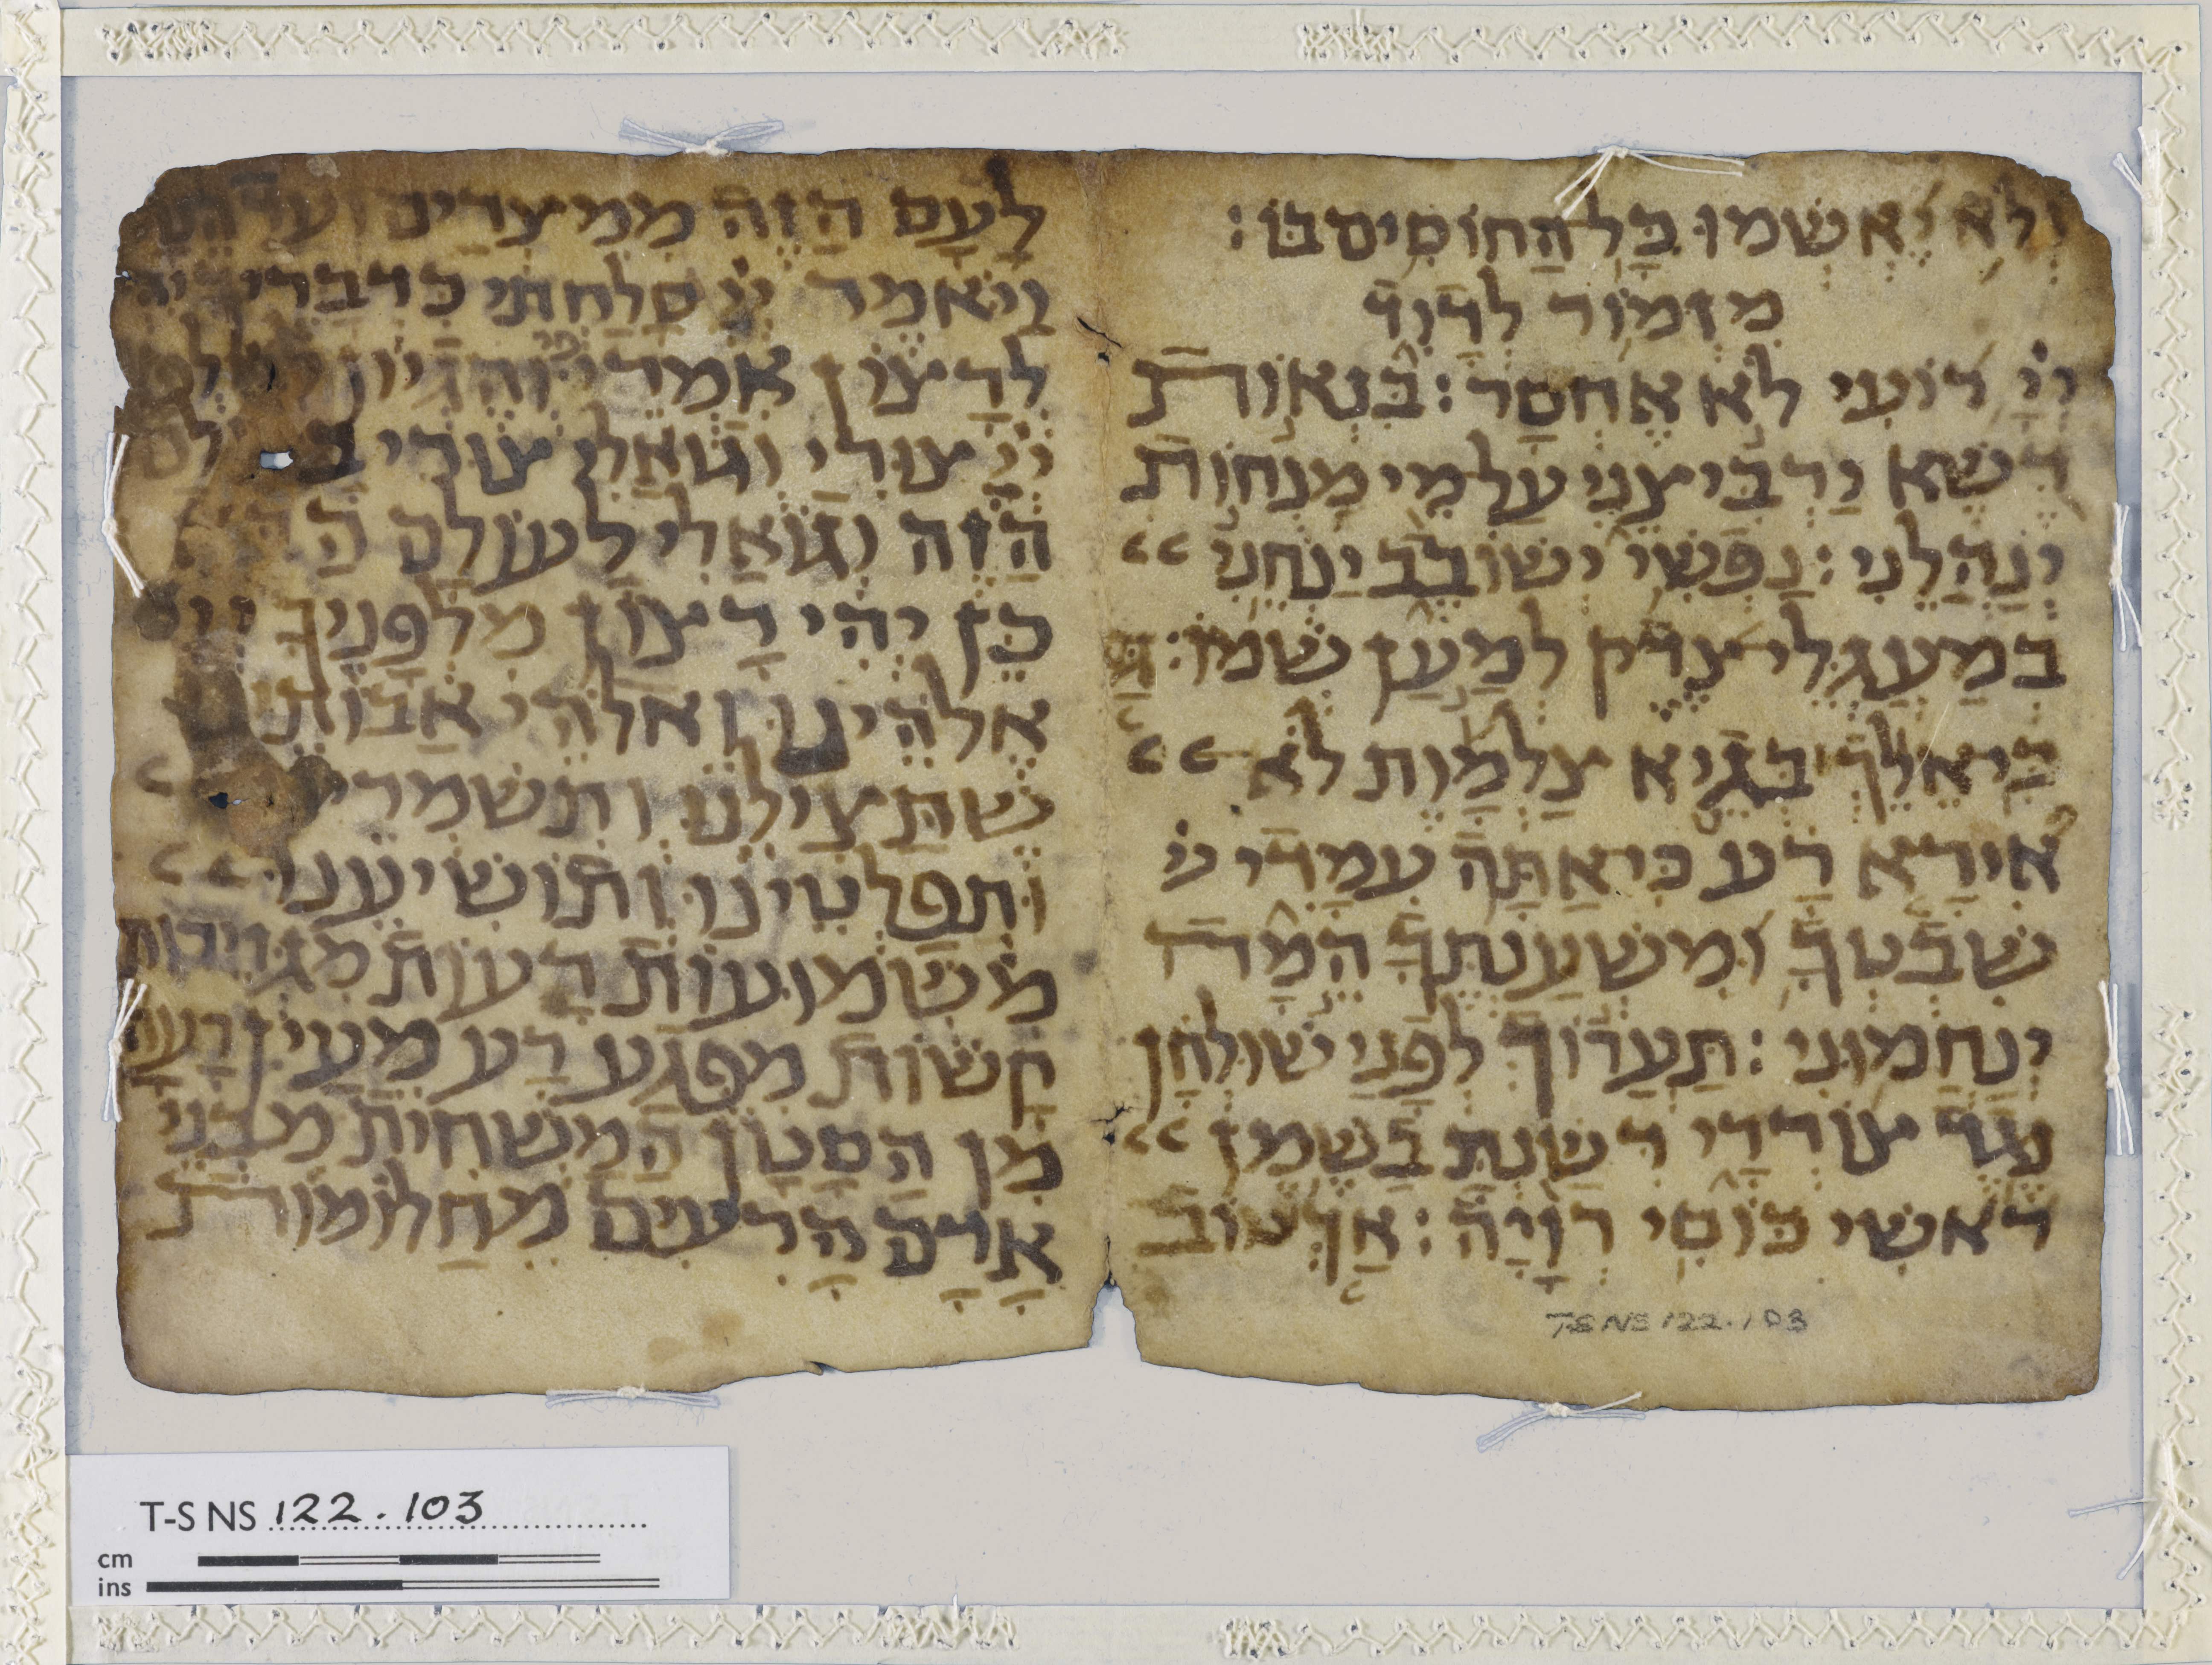 ולא יאשמו כל החוסים בו׃
מזמור לדוד
ייי רועי לא אחסר׃ בנאות
דשא ירביצני על מי מנחות
ינהלני׃ נפשי ישובב ינחני
במעגלי צדק למען שמו׃ גם
כי אלך בגיא צלמות לא
אירא רע כי אתה עמדי
שבטך ומשענתך המה
ינחמוני׃ תערוך לפני שולחן
נגד צוררי דשנת בשמן
ראשי כוסי רויה׃ אך טוב
T-S NS 122.103
לעם הזה ממצרים ועד
ויאמר ייי סלחתי כדבריך
לרצון אמרי פי והגיון
ייי צורי וגואלי צורי
הזה וגואלי לעולם
כן יהי רצון מלפניך ייי
אלהינו ואלהי אבותי
שתצילנו ותשמרי
ותפלטינו ותושיענו
משמועות רעות מגזירות
קשות מפגע רע מעין רעה
מן הסטן המשחית מבני
אדם הרעים מחלומות
T-S NS 122.103
cm
ins